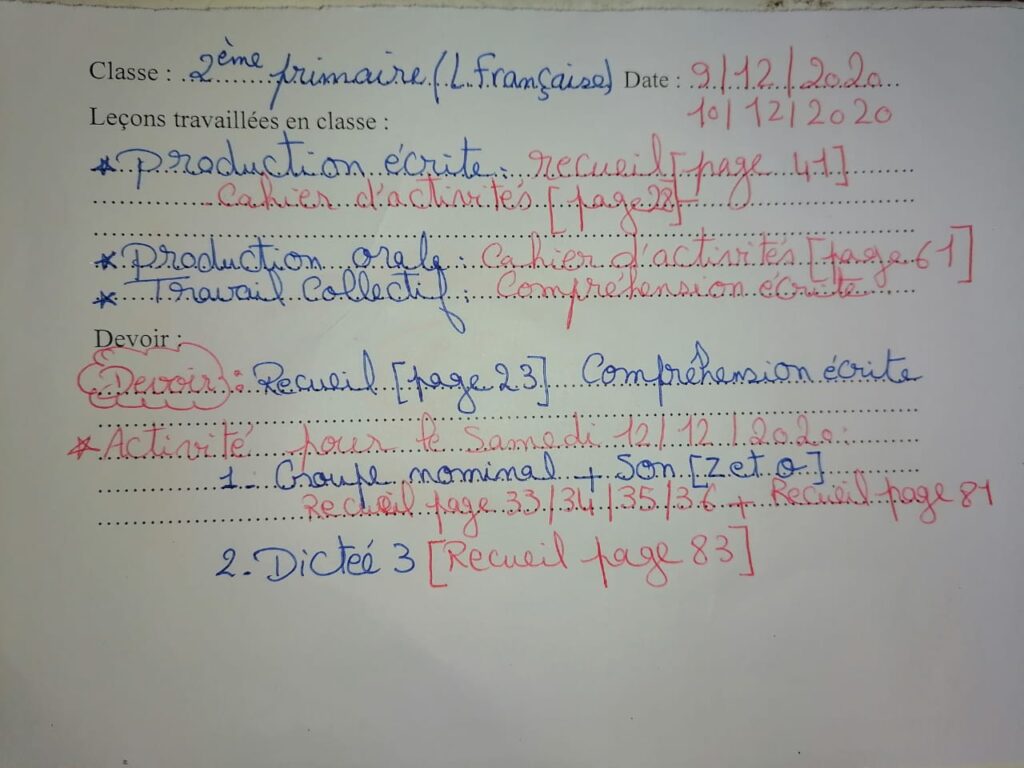 Classe : 2ème primaire (L. Française) Date : 9/12/2020
10/12/2020
Leçons travaillées en classe :
* Production écrite : recueil [page 41]
Cahier d'activités [page 28]
* Production orale : Cahier d'activités [page 61]
* Travail Collectif : Compréhension écrite
Devoir :
Devoir : Recueil [page 23] Compréhension écrite
* Activité pour le Samedi 12/12/2020 :
1. Groupe nominal + Son [z et o]
Recueil page 33/34/35/36 + Recueil page 81
2. Dicteé 3 [Recueil page 83]